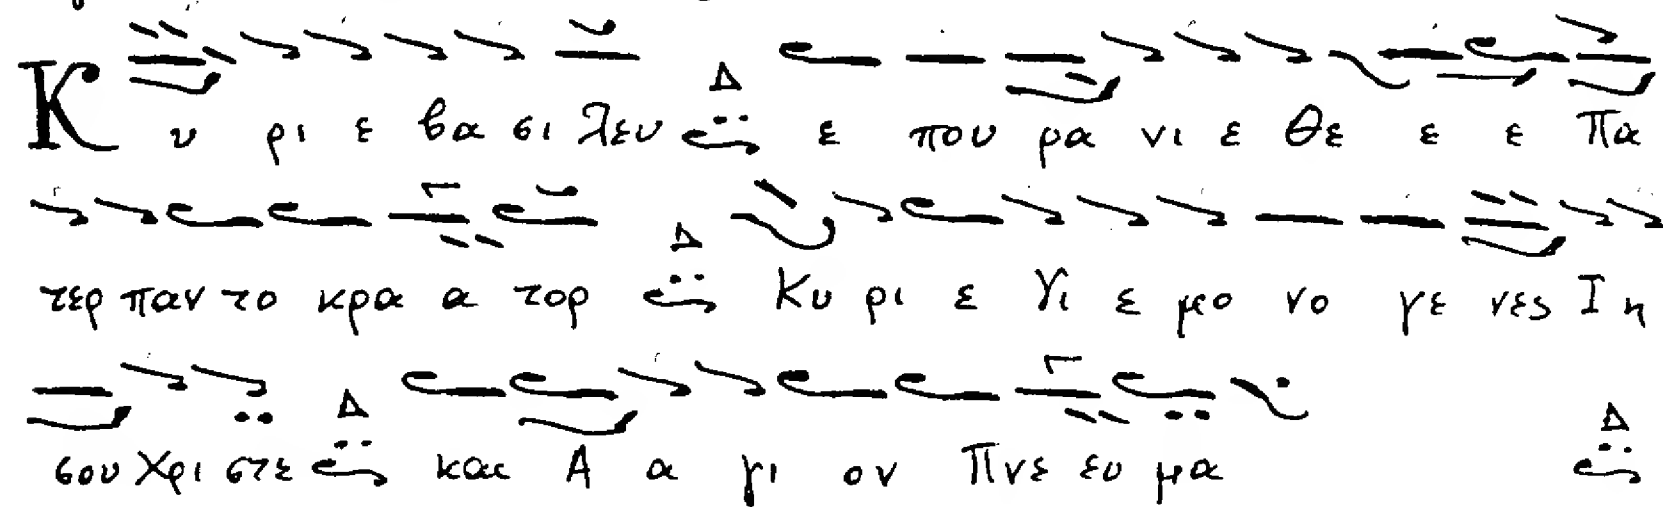 Κ υ ρι ε βα σι λευ Δ ε που ρα νι ε Θε ε ε Πα
τερ παν το κρα α τορ Δ Κυ ρι ε Υι ε μο νο γε νες Ι η
σου Χρι στε Δ και Α α γι ον Πνε ευ μα Δ